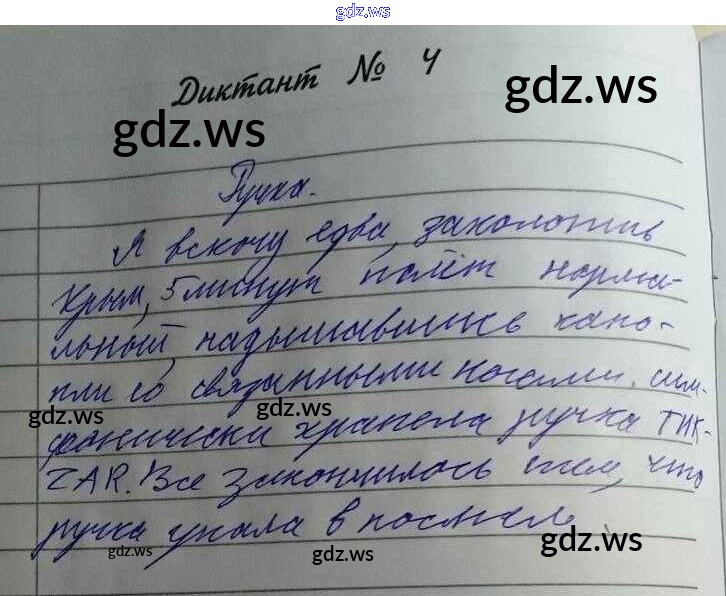 gdz.ws
Диктант № 4
gdz.ws
gdz.ws
Ручка.
Я вскочу едва, захолотив
Крым, 5 минут полёт норма-
льный, надышавшись кано-
пли со связанными ногами, сим-
фонически храпела ручка ТИК-
ТАК. Все закончилось тем, что
ручка упала в
gdz.ws
gdz.ws
gdz.ws
gdz.ws
gdz.ws